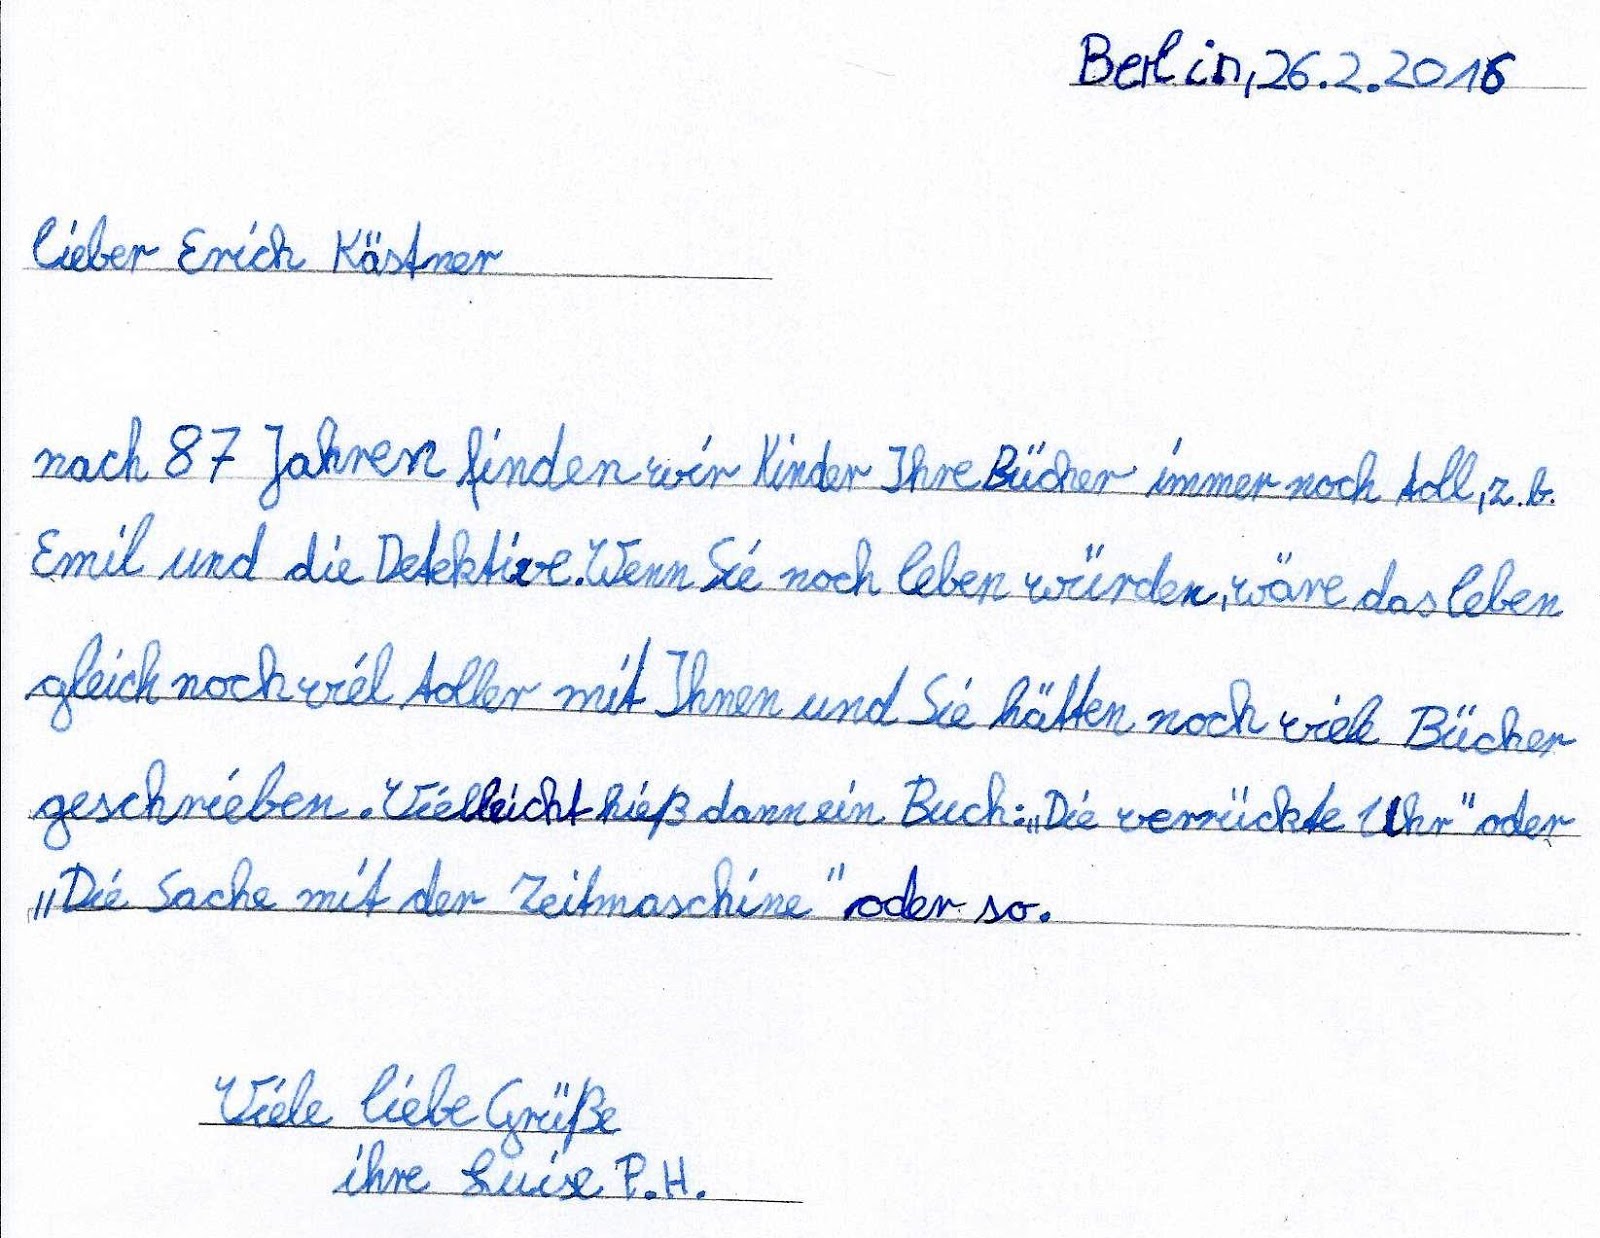 Berlin, 26.2.2016
lieber Erich Kästner
nach 87 Jahren finden wir Kinder Ihre Bücher immer noch toll, z.b.
Emil und die Detektive. Wenn Sie noch leben würden, wäre das leben
gleich noch viel toller mit Ihnen und Sie hätten noch viele Bücher
geschrieben. Vielleicht hieß dann ein Buch: „Die verrückte Uhr" oder
„Die Sache mit der Zeitmaschine" oder so.
Viele liebe Grüße
ihre Luise P.H.